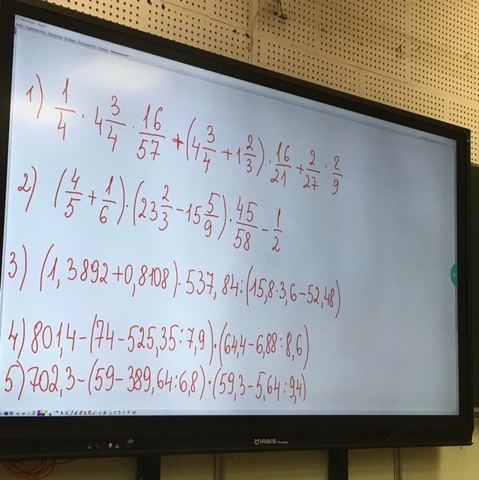 1) 1/4 · 4 3/4 · 16/57 + (4 3/4 + 1 2/3) · 16/21 + 2/27 : 2/9
2) (4/5 + 1/6) · (23 2/3 - 15 5/9) · 45/58 - 1/2
3) (1,3892+0,8108)·537,84:(15,8·3,6-52,48)
4) 801,4-(74-525,35:7,9)·(64,4-6,88:8,6)
5) 702,3-(59-389,64:6,8)·(59,3-5,64:9,4)
IRBIS